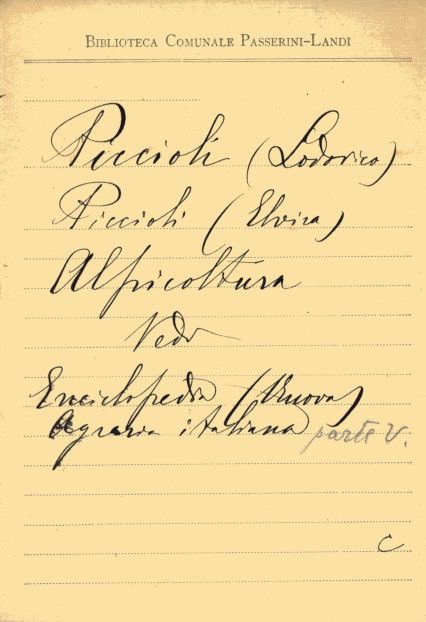 BIBLIOTECA COMUNALE PASSERINI-LANDI
Piccioli (Lodovico)
Piccioli (Elvira)
Alpicoltura
Vedi
Enciclopedia (Nuova)
Agraria italiana parte V.
C